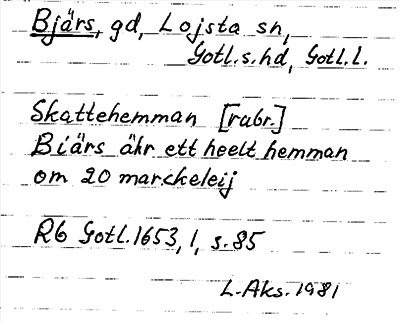 Bjärs, gd, Lojsta sn,
Gotl.s.hd, Gotl.l.
Skattehemman [rubr.]
Biärs äkr ett heelt hemman
om 20 marckeleij
RG Gotl. 1653, 1, s. 85
L.Aks. 1981